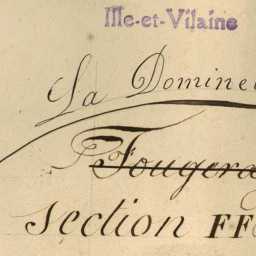 Ille-et-Vilaine
La Domine
Fougera
Section FF